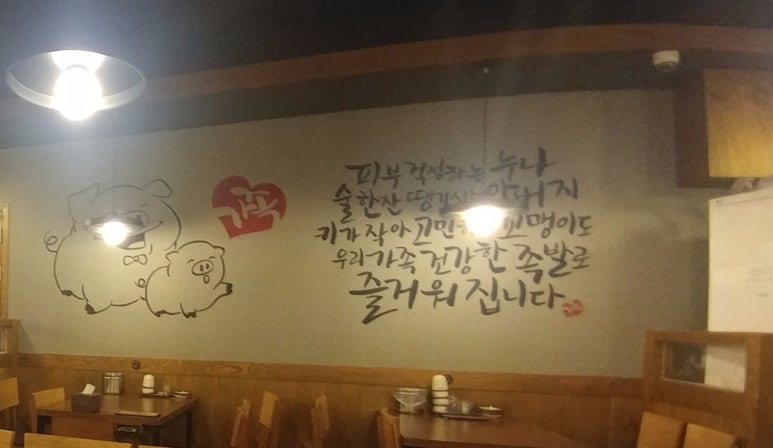 가족
피부 걱정하는 누나
술 한잔 땡기시는 아버지
키가 작아 고민하는 꼬맹이도
우리 가족 건강한 족발로
즐거워 집니다